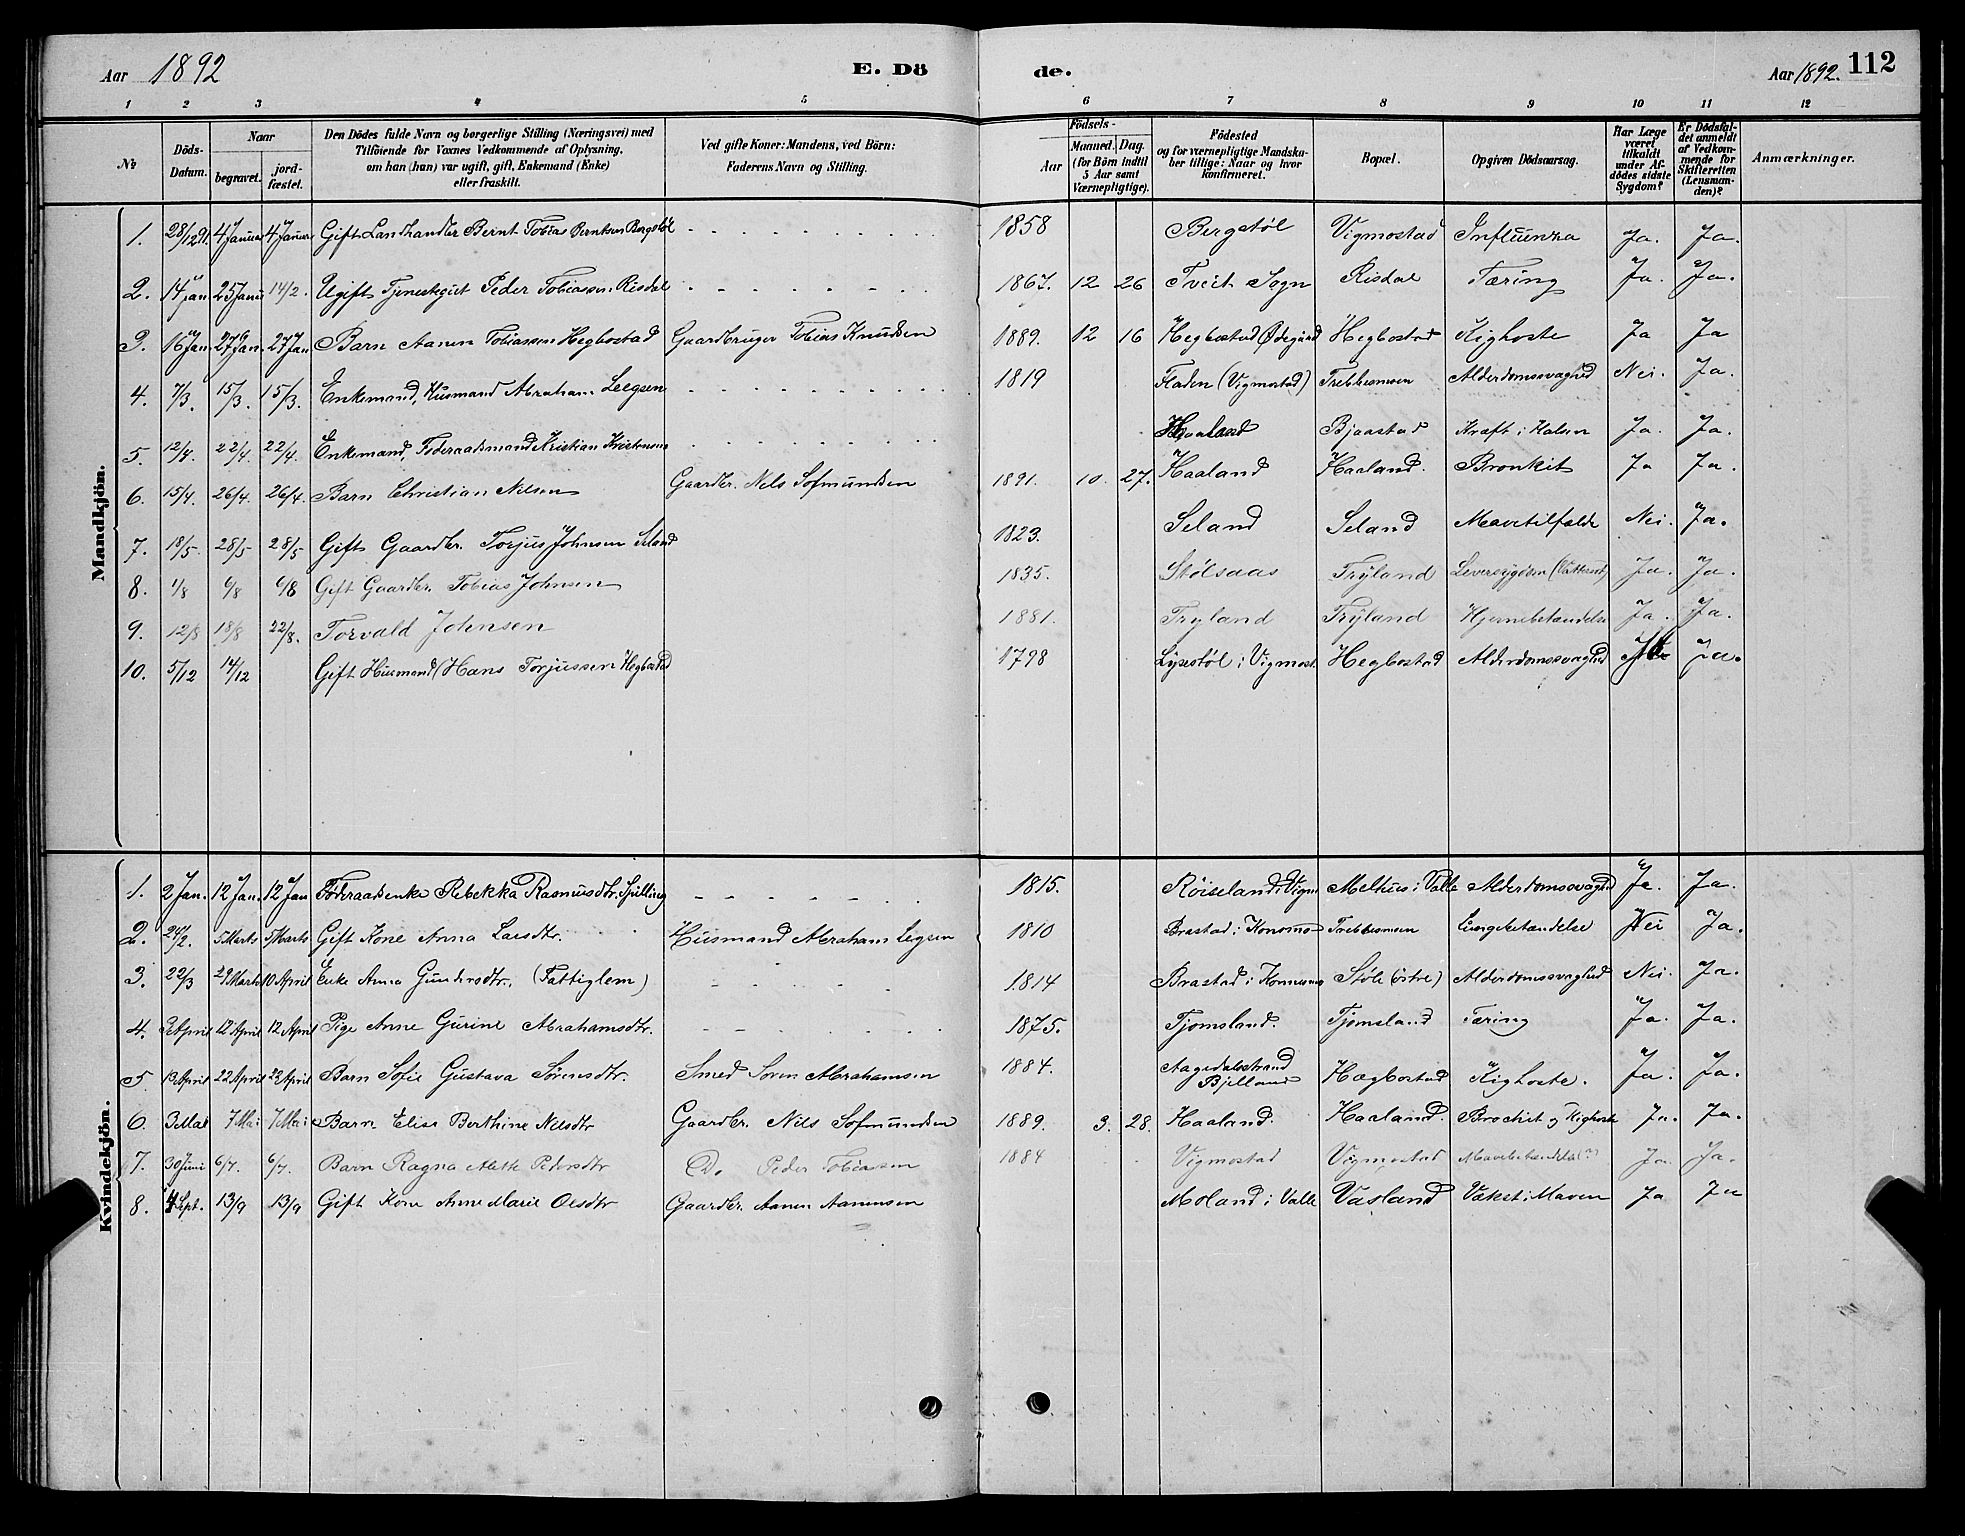 Aar 1892 E. Dö de. Aar 1892. 112
1 2 3 4 5 6 7 8 9 10 11 12
No
Döds-Datum.
Naar
begravet. jord-fæstet.
Den Dödes fulde Navn og borgerlige Stilling (Næringsvei) med
Tilföiende for Voxnes Vedkommende af Oplysning,
om han (hun) var ugift, gift, Enkemand (Enke)
eller fraskilt.
Ved gifte Koner: Mandens, ved Börn:
Faderens Navn og Stilling.
Födsels-
Aar Maaned. Dag.
(for Börn indtil
5 Aar samt
Værnepligtige).
Födested
og for værnepligtige Mandska-
ber tillige: Naar og hvor
konfirmeret.
Bopæl.
Opgiven Dödsaarsag.
Har Læge
været
tilkaldt
under Af-
dödes sidste
Sygdom?
Er Dödsfal-
det anmeldt
af Vedkom-
mende for
Skifteretten
(Lensman-
den)?
Anmærkninger.
Mandkjön.
1. 28/12 91. 4 Januar 4 Januar Gift Landhandler Bernt Tobias Berntsen Bergstøl 1858 Bergstøl Vigmostad Influenza Ja. Ja.
2. 14 Jan. 25 Janu 14/2. Ugift Tjenestegut Peder Tobiassen Risdal 1867. 12 26 Tveit Sogn Risdal Tæring Ja. Ja.
3. 16 Jan. 27 Jan. 27 Jan Barn Aanen Tobiassen Hegbostad Gaardbruger Tobias Knudsen 1889. 12 16 Hegbostad Ødegård Hegbostad Kighoste Ja Ja
4. 7/3. 15/3. 15/3. Enkemand, Husmand Abraham Leegsen 1819 Fladen (Vigmostad) Trebbesmoen Alderdomssvaghed Nei. Ja.
5. 12/4. 22/4. 22/4. Enkemand, Föderaadsmand Kristian Kristensen Haaland Bjaastad Kræft i Halsen Ja. Ja.
6. 15/4. 26/4. 26/4. Barn Christian Nilsen Gaardbr. Nels Sofmundsen 1891. 10. 27. Haaland Haaland. Bronkit Ja Ja.
7. 18/5. 28/5 28/5 Gift Gaardbr. Torjus Johnsen Seland 1823. Seland Seland Mavetilfælde Nei. Ja.
8. 1/8 6/8 6/8 Gift Gaardbr. Tobias Johnsen 1835. Stølsaas Tryland Leversygdom Ja. Ja.
9. 12/8 18/8 22/8. Torvald Johnsen 1881. Tryland Tryland Hjernebetændelse Ja. Ja.
10. 5/12 14/12 Gift Husmand (Hans Torjussen Hegbostad 1798 Lysestøl i Vigmost. Hegbostad Alderdomssvaghed Ja.
Kvindekjön.
1. 2 Jan. 12 Jan. 12 Jan Föderaadsenke Rebekka Rasmusdtr. Spilling 1815. Röiseland i Vigm Melhus i Valle Alderdomssvaghed Ja. Ja.
2. 24/2. 5 Marts 5 Marts Gift Kone Anna Larsdtr. Husmand Abraham Legsen 1810 Brastad i Konsmo Trebbesmoen Lungebetændelse Nei Ja.
3. 22/3 29 Marts 10 April Enke Anna Gundersdtr. (Fattiglem) 1814 Brastad i Konsmo Støle (østre) Alderdomssvaghed Nei. Ja.
4. 3 April 12 April 12 April Pige Anne Gurine Abrahamsdtr. 1875. Tjomsland. Tjomsland Tæring Ja. Ja.
5. 13 April 22 April 22 April Barn Sofie Gustava Sörensdtr. Smed Sören Abrahamsen 1884. Aagedalsstrand Bjelland Hægbostad Kighoste. Ja. Ja.
6. 3 Mai 7 Mai 7 Mai Barn Elise Berthine Nelsdtr Gaardbr. Nils Sofmundsen 1889. 3. 28. Haaland. Haaland. Brockit og Kighoste Ja. Ja.
7. 30 Juni 6/7. 6/7. Barn Ragna Alette Pedersdtr Do Peder Tobiassen 1884 Vigmostad Vigmostad Mavebetændelse (?) Ja. Ja.
8. 4 Sept. 13/9 13/9 Gift Kone Anne Marie Olsdtr Gaardbr. Aanen Aanensen Moland i Valle Vasland Vækst i Maven Ja Ja